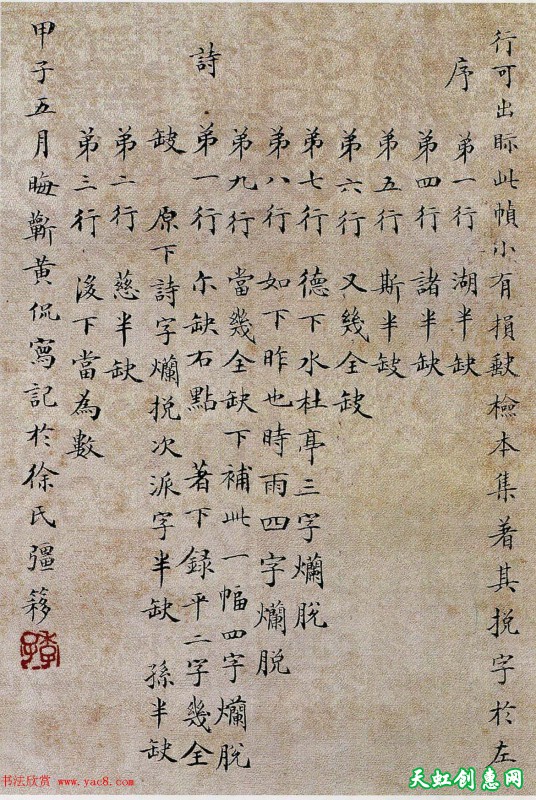 行可出眎此幀小有損缺檢本集著其挩字於左
序
第一行 湖半缺
第四行 諸半缺
第五行 斯半缺
第六行 又幾全缺
第七行 德下水杜亭三字爛脫
第八行 如下昨也時雨四字爛脫
第九行 當幾全缺下補此一幅四字爛脫
詩
第一行 尓缺右點 著下錄平二字幾全
缺 原下詩字爛挩次派字半缺 孫半缺
第二行 慈半缺
第三行 後下當為數
甲子五月晦蘄黃侃寫記於徐氏彊簃
书法欣赏 www.yac8.com
天虹创惠网